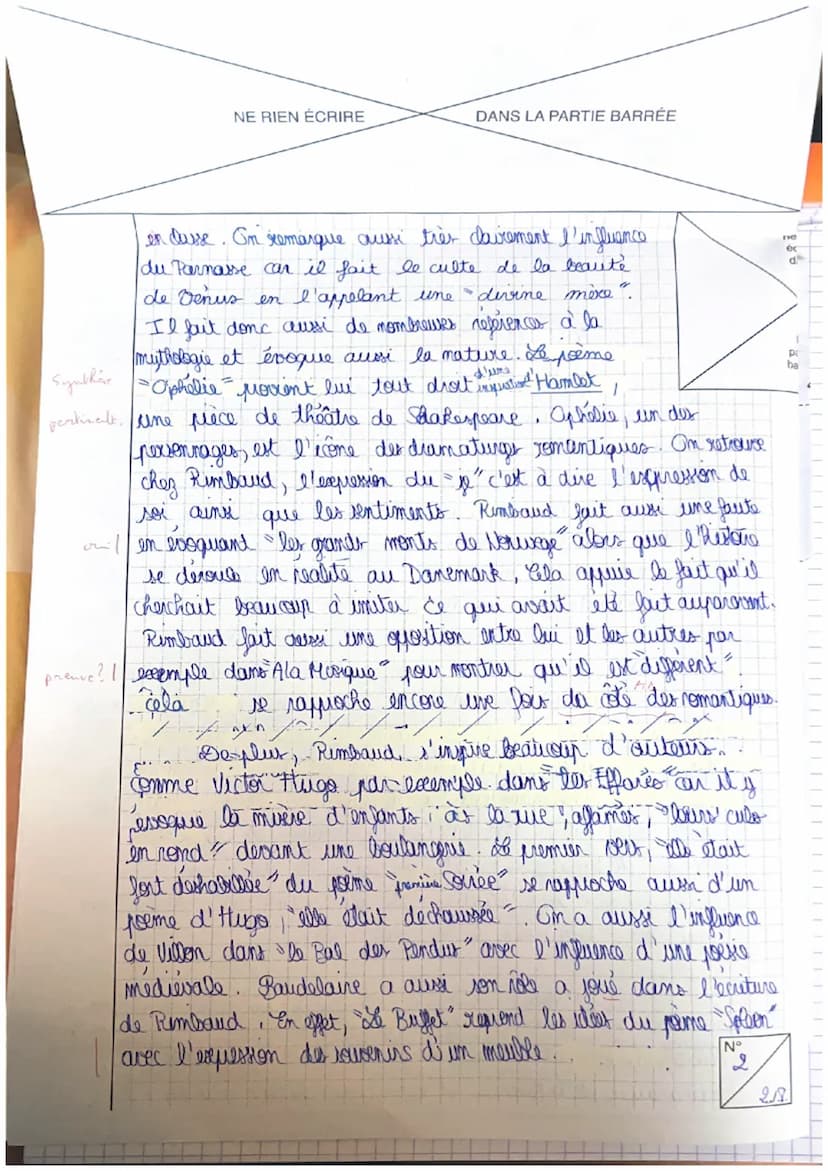 NE RIEN ÉCRIRE DANS LA PARTIE BARRÉE
en classe. On remarque aussi très clairement l'influence
du Parnasse car il fait le culte de la beauté
de Vénus en l'appelant une "divine mère".
Il fait donc aussi de nombreuses références à la
mythologie et évoque aussi la nature. Le poème
Synthèse
"Ophélie" provient lui tout droit d'une inspiration d'Hamlet,
pertinente.
une pièce de théâtre de Shakespeare. Ophélie, un des
personnages, est l'icône des dramaturges romantiques. On retrouve
chez Rimbaud, l'expression du "je" c'est à dire l'expression de
soi ainsi que les sentiments. Rimbaud fait aussi une faute
oui!
en évoquant "les grands monts de Norvege" alors que l'histoire
se déroule en réalité au Danemark, Cela appuie le fait qu'il
cherchait beaucoup à imiter ce qui avait été fait auparavant.
Rimbaud fait aussi une opposition entre lui et les autres par
preuve?
exemple dans "A la Musique" pour montrer qu'il est "différent".
cela se rapproche encore une fois du côté des romantiques.
De plus, Rimbaud, s'inspire beaucoup d'auteurs
comme Victor Hugo par exemple dans "les Effarés" car il y
évoque la misère d'enfants à la rue, affamés, "leurs culs
en rond" devant une boulangerie. Le premier vers, "elle était
fort déshabillée" du poème "première Soirée" se rapproche aussi d'un
poème d'Hugo, "elle était déchaussée". On a aussi l'influence
de Villon dans "le Bal des Pendus" avec l'influence d'une poésie
médiévale. Baudelaire a aussi son rôle a joué dans l'écriture
de Rimbaud. En effet, "Le Buffet" reprend les idées du poème "Spleen"
avec l'expression des souvenirs d'un meuble.
N°
2